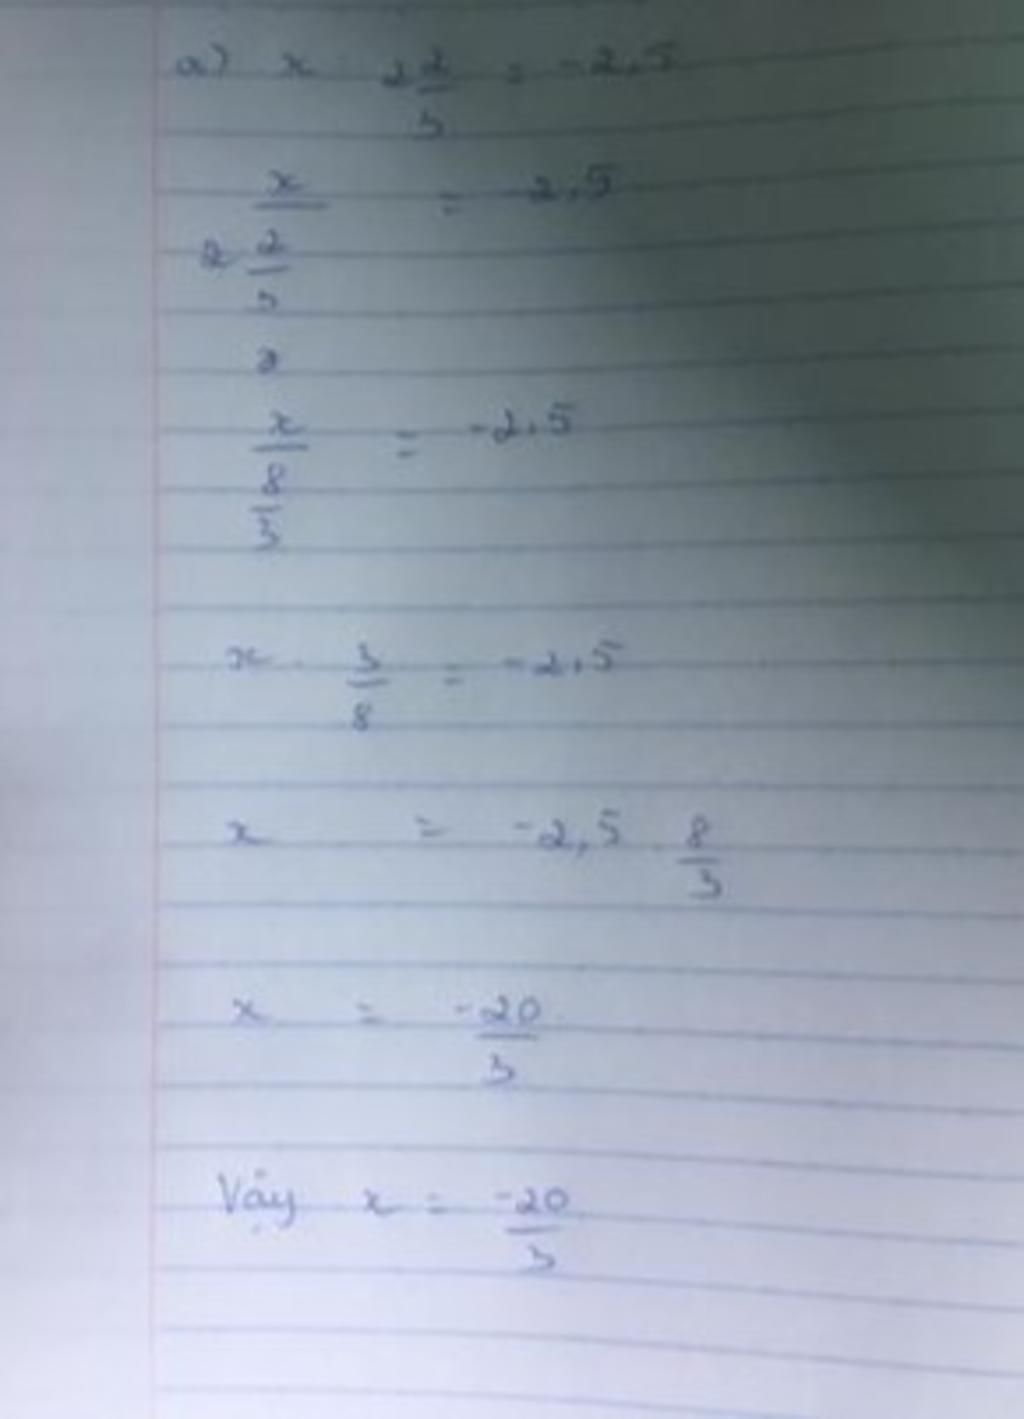 a) x : 2 2/3 = -2,5
x / (2 2/3) = -2,5
2
x / (8/3) = -2,5
x . 3/8 = -2,5
x = -2,5 . 8/3
x = -20/3
Vậy x = -20/3